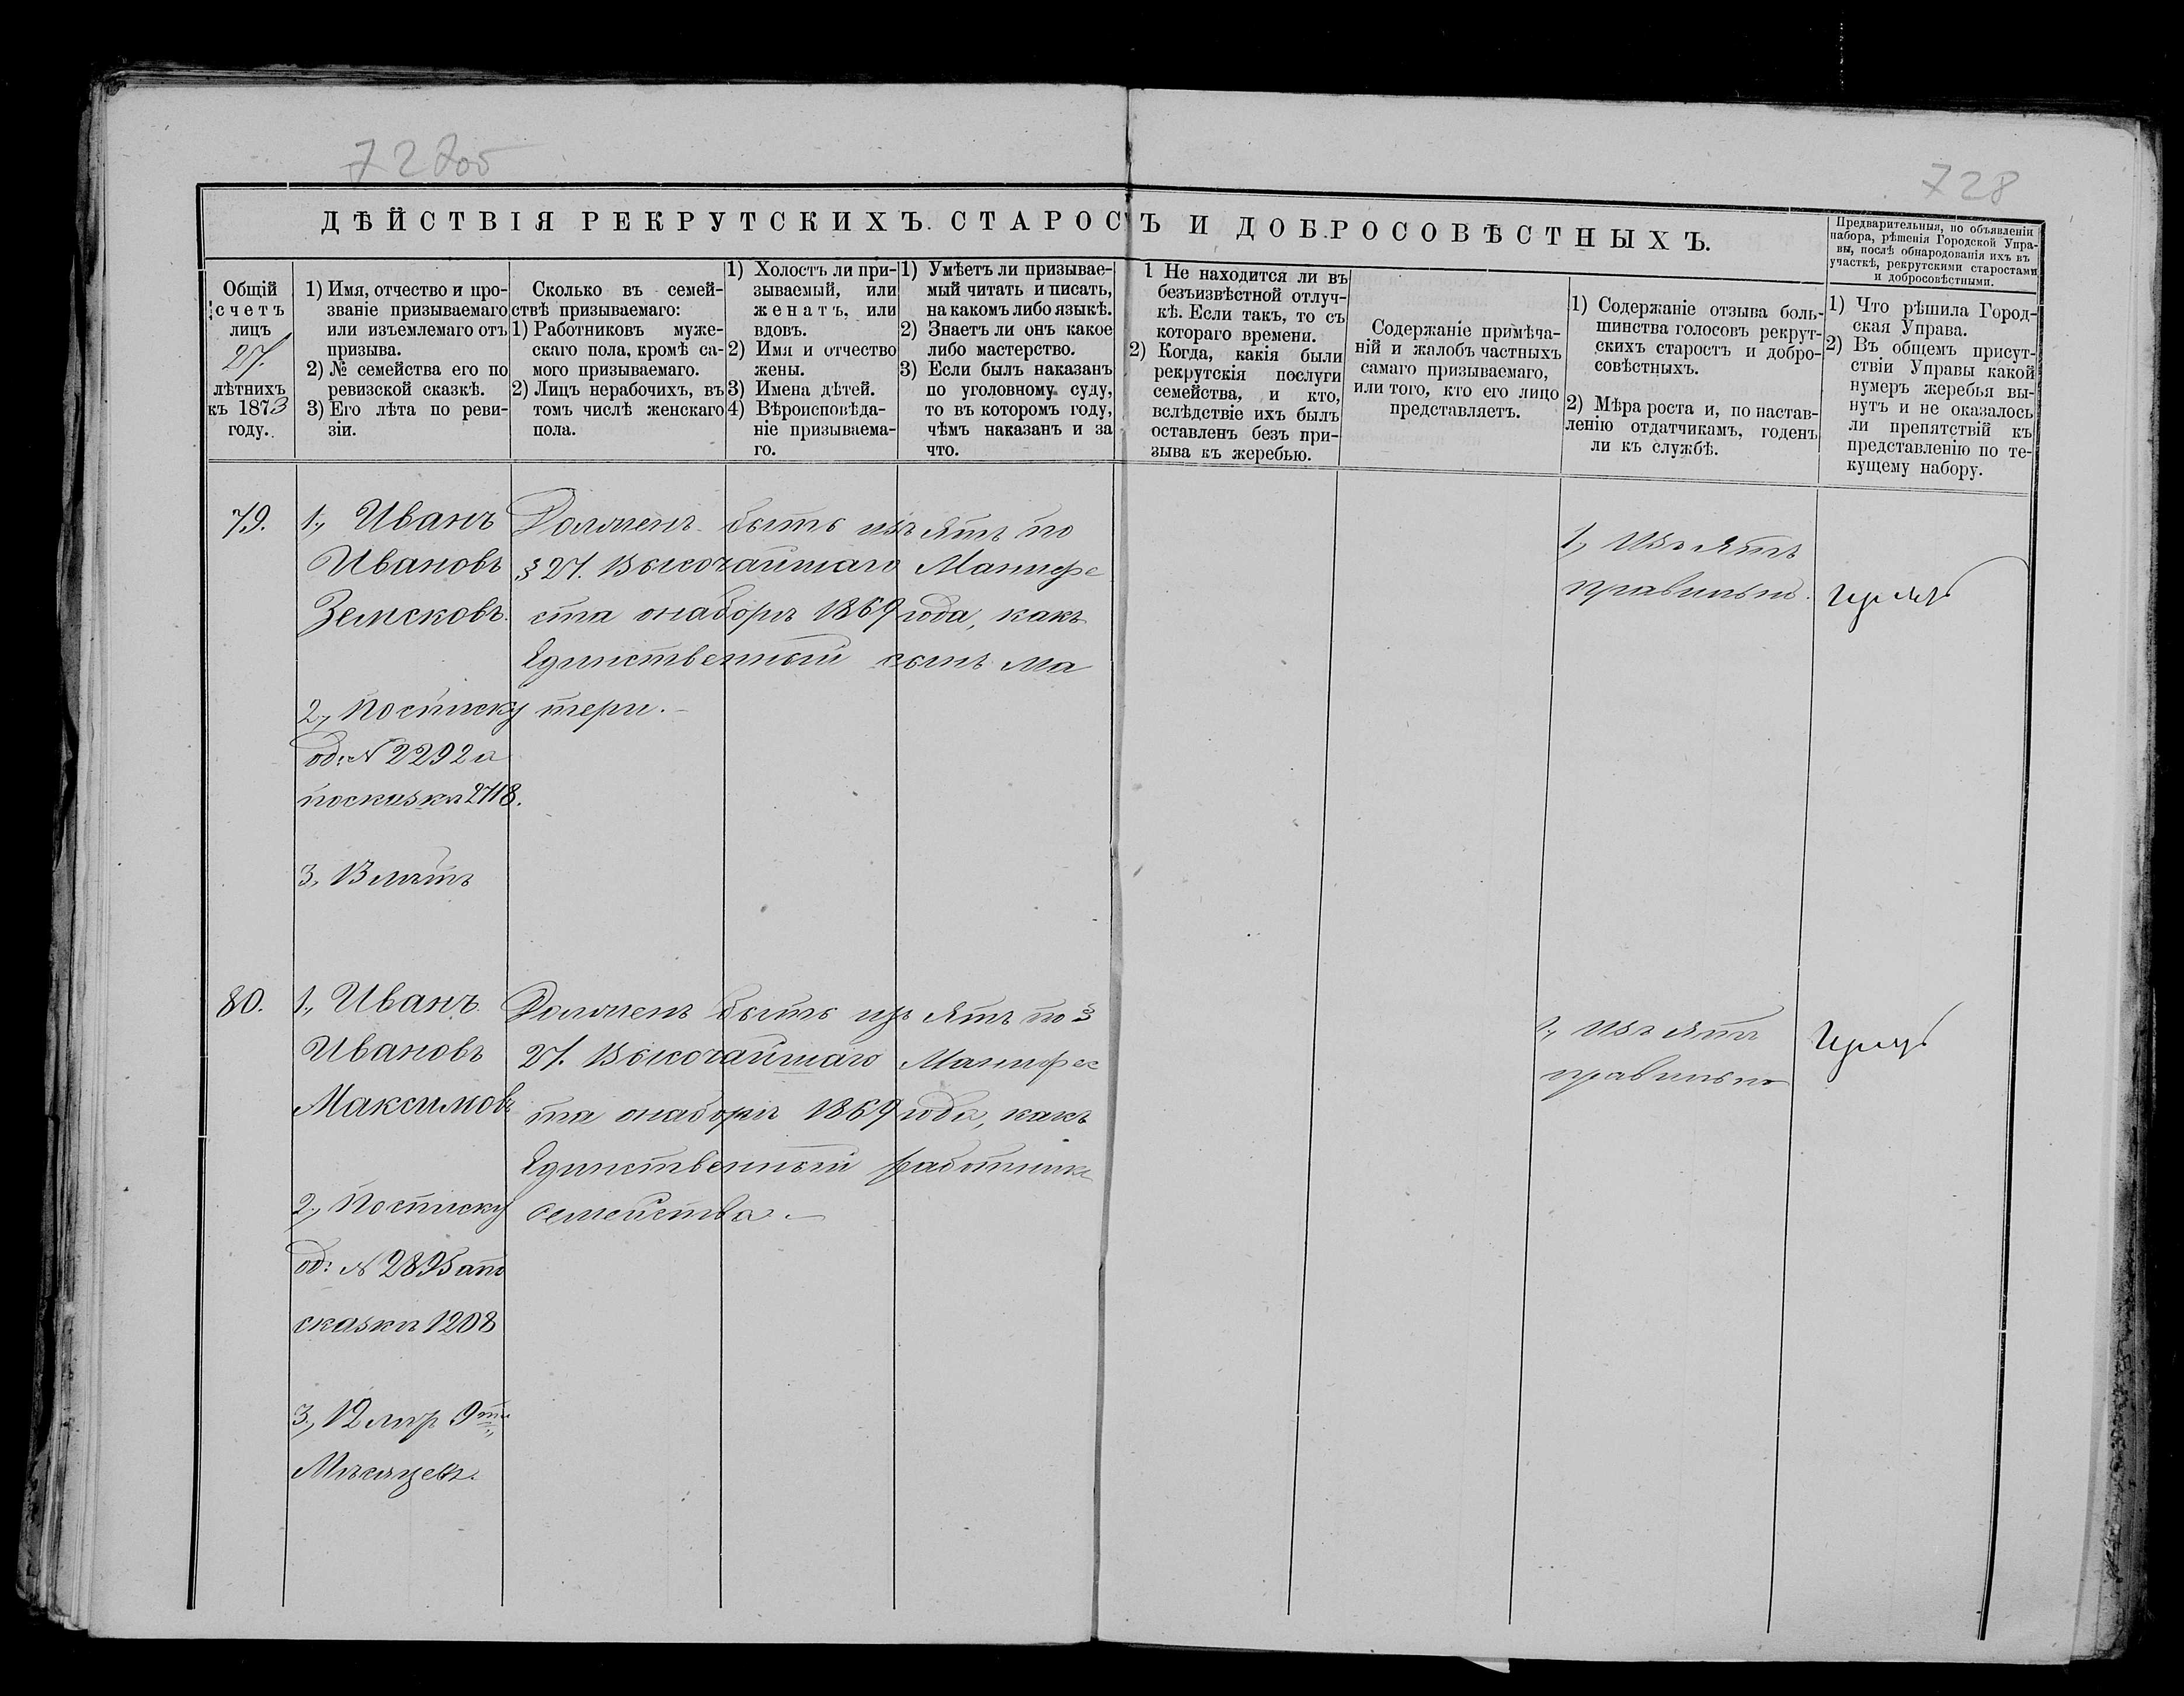 727об
728
ДѢЙСТВІЯ РЕКРУТСКИХЪ СТАРОСТЪ И ДОБРОСОВѢСТНЫХЪ.
Предварительныя, по объявленіи
набора, рѣшенія Городской Упра-
вы, послѣ обнародованія ихъ въ
участкѣ, рекрутскими старостами
и добросовѣстными.
Общій
счетъ
лицъ
27.
лѣтнихъ
къ 1873
году.
1) Имя, отчество и про-
званіе призываемаго
или изъемлемаго отъ
призыва.
2) № семейства его по
ревизской сказкѣ.
3) Его лѣта по реви-
зіи.
Сколько въ семей-
ствѣ призываемаго:
1) Работниковъ муже-
скаго пола, кромѣ са-
мого призываемаго.
2) Лицъ нерабочихъ, въ
томъ числѣ женскаго
пола.
1) Холостъ ли при-
зываемый, или
женатъ, или
вдовъ.
2) Имя и отчество
жены.
3) Имена дѣтей.
4) Вѣроисповѣда-
ніе призываема-
го.
1) Умѣетъ ли призывае-
мый читать и писать,
на какомъ либо языкѣ.
2) Знаетъ ли онъ какое
либо мастерство.
3) Если былъ наказанъ
по уголовному суду,
то въ которомъ году,
чѣмъ наказанъ и за
что.
1 Не находится ли въ
безъизвѣстной отлуч-
кѣ. Если такъ, то съ
котораго времени.
2) Когда, какія были
рекрутскія послуги
семейства, и кто,
вслѣдствіе ихъ былъ
оставленъ безъ при-
зыва къ жеребью.
Содержаніе примѣча-
ній и жалобъ частныхъ
самаго призываемаго,
или того, кто его лицо
представляетъ.
1) Содержаніе отзыва боль-
шинства голосовъ рекрут-
скихъ старостъ и добро-
совѣстныхъ.
2) Мѣра роста и, по настав-
ленію отдатчикамъ, годенъ
ли къ службѣ.
1) Что рѣшила Город-
ская Управа.
2) Въ общемъ присут-
ствіи Управы какой
нумеръ жеребья вы-
нутъ и не оказалось
ли препятствій къ
представленію по те-
кущему набору.
79.
1., Иванъ
Ивановъ
Земсковъ.
2., По списку
од: № 2292 а
по сказкѣ 2718.
3., 13 лѣтъ
Долженъ быть изъятъ по
§ 27. Высочайшаго Манифе
ста о наборѣ 1869 года, какъ
Единственный сынъ ма
тери. –
1., Изъятъ
правильно.
80.
1., Иванъ
Ивановъ
Максимовъ
2., По списку
од: № 2895 а по
сказкѣ 1208
3., 12 лѣтъ 9ти
Мѣсяцевъ.
Долженъ быть изъятъ по §
27. Высочайшаго Манифес
та о наборѣ 1869 года, какъ
Единственный работникъ
семейства. –
1., Изъятъ
правильно